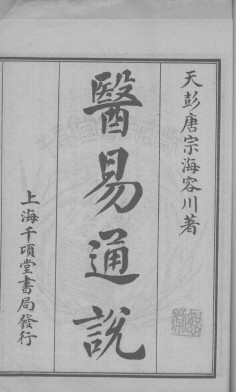 天彭唐宗海容川著
醫易通說
上海千頃堂書局發行